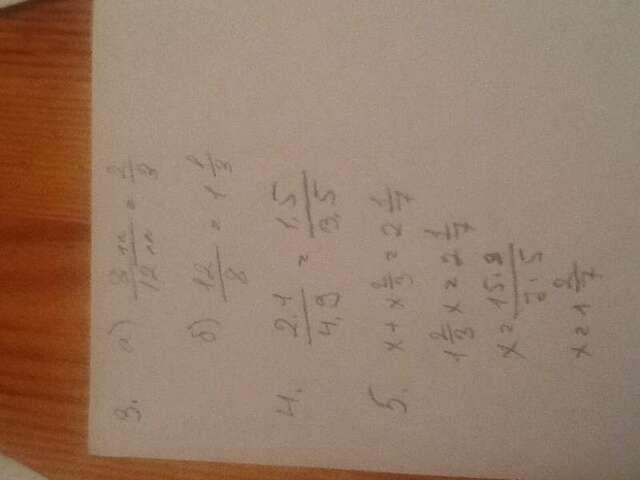 3. а) 8 м / 12 м = 2/3
б) 12/8 = 1 1/3
4. 2,1/4,9 = 1,5/3,5
5. x + x 2/3 = 2 1/7
1 2/3 x = 2 1/7
x = 15·3 / 7·5
x = 1 2/7